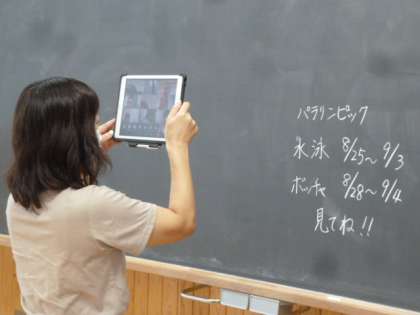 パラリンピック
水泳 8/25〜9/3
ボッチャ 8/28〜9/4
見てね!!